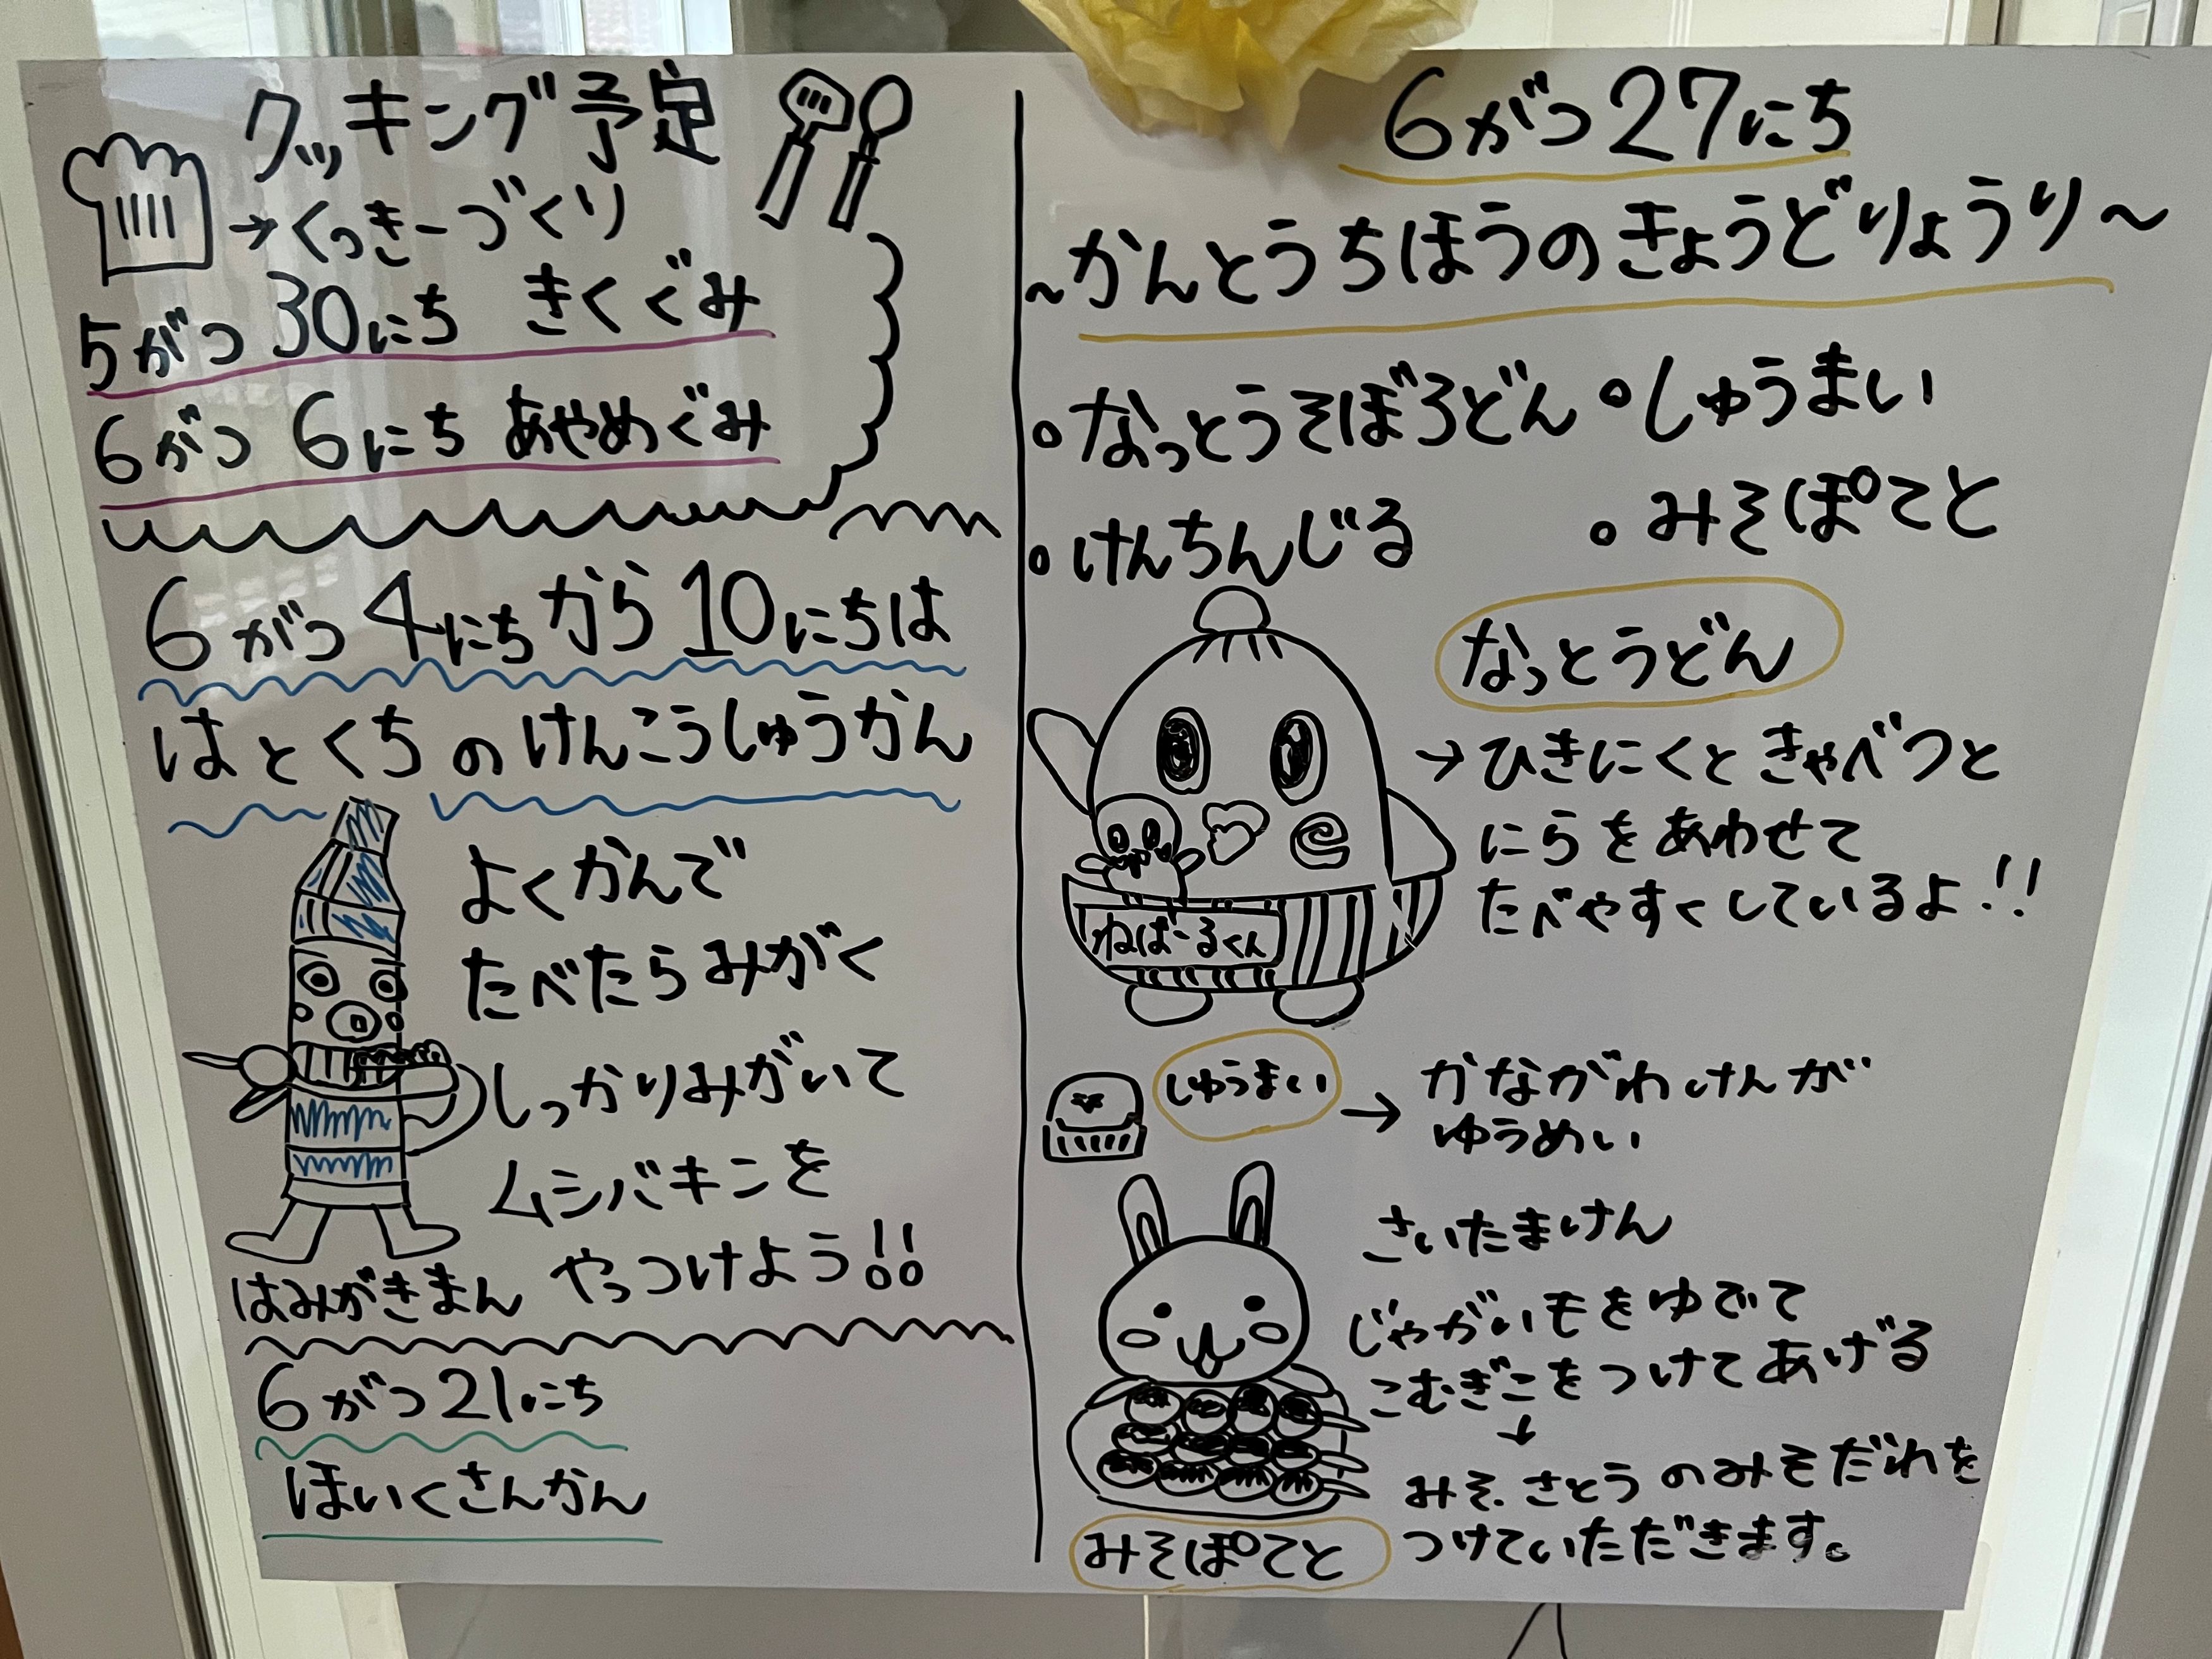 クッキング予定
→くっきーづくり
5がつ30にち きくぐみ
6がつ6にち あやめぐみ
6がつ4にちから10にちは
はとくちのけんこうしゅうかん
よくかんで
たべたらみがく
しっかりみがいて
ムシバキンを
やっつけよう!!
はみがきまん
6がつ21にち
ほいくさんかん
6がつ27にち
~かんとうちほうのきょうどりょうり~
○なっとうそぼろどん ○しゅうまい
○けんちんじる ○みそぽてと
なっとうどん
→ひきにくときゃべつと
にらをあわせて
たべやすくしているよ!!
ねばーるくん
しゅうまい → かながわけんが
ゆうめい
さいたまけん
じゃがいもをゆでて
こむぎこをつけてあげる
↓
みそ.さとうのみそだれを
つけていただきます。
みそぽてと